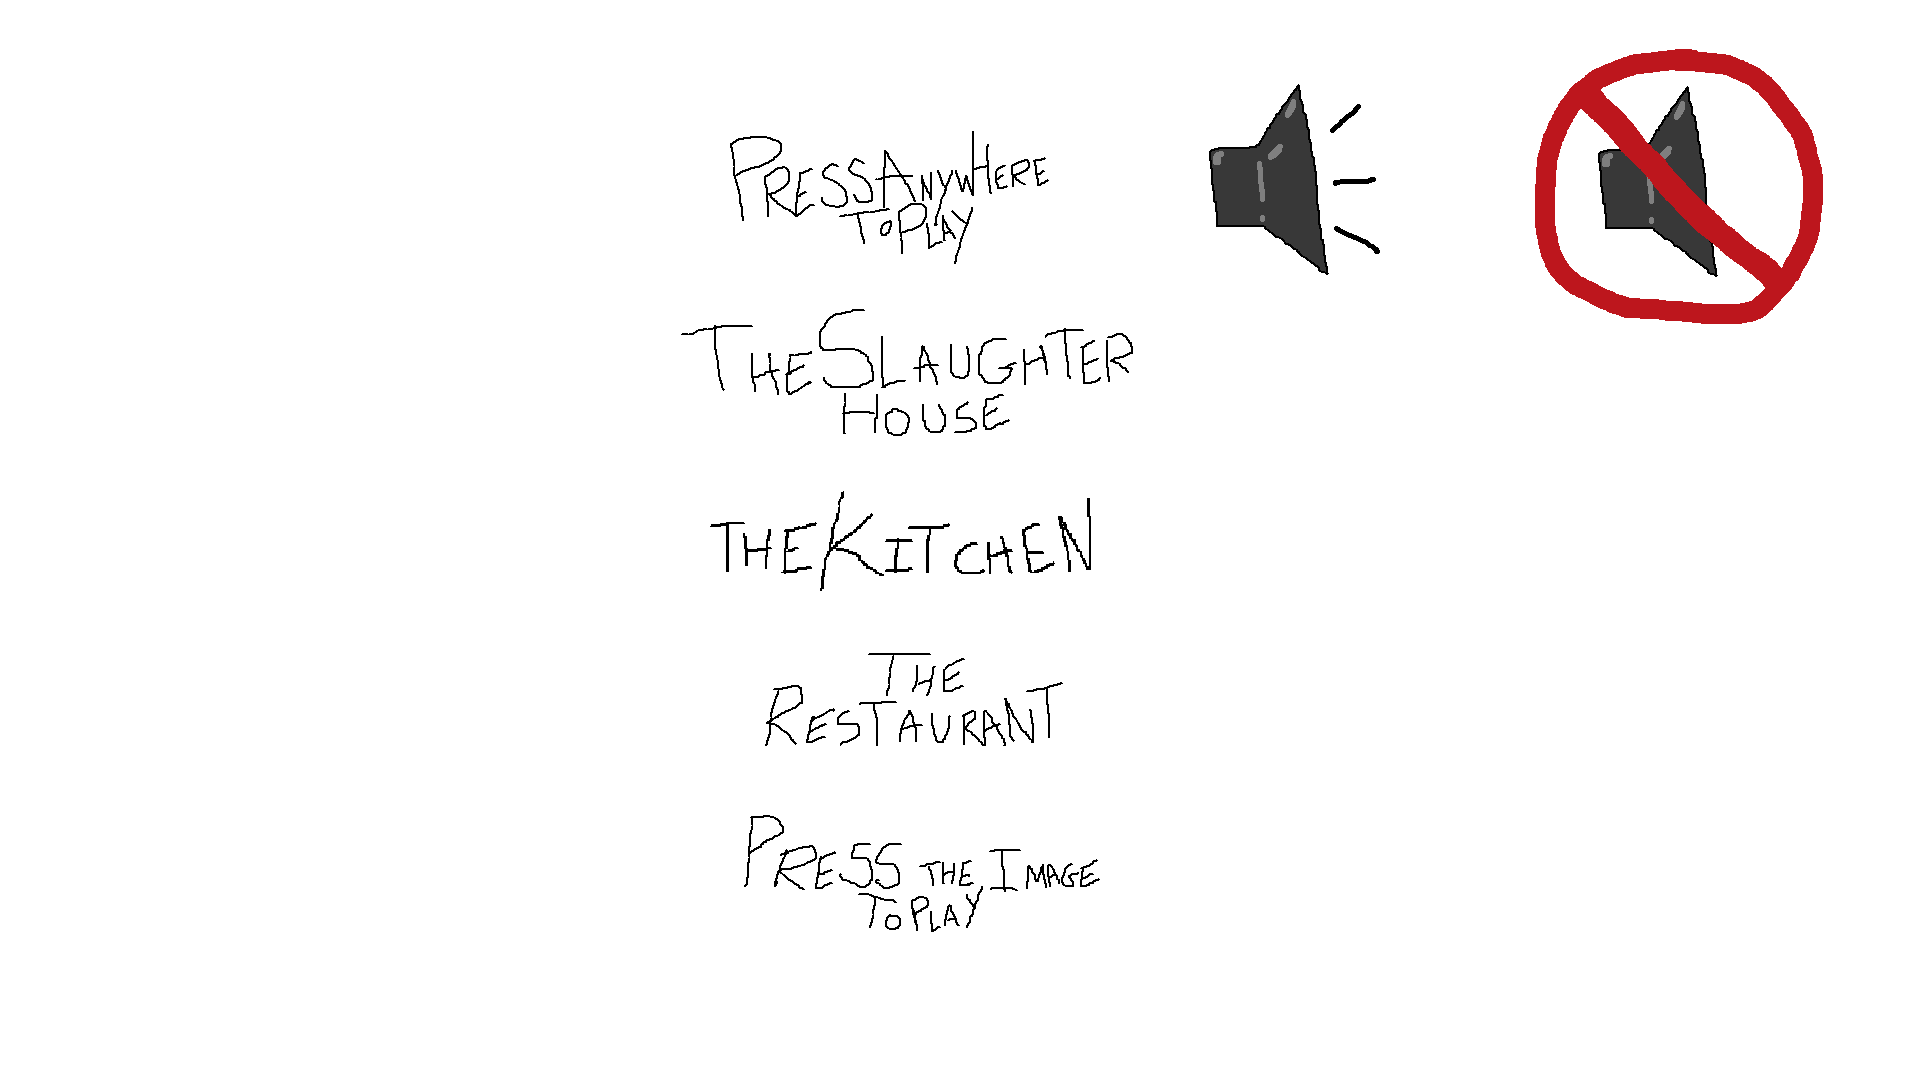 PRESS ANYWHERE
TO PLAY
THE SLAUGHTER
HOUSE
THE KITCHEN
THE
RESTAURANT
PRESS THE IMAGE
TO PLAY